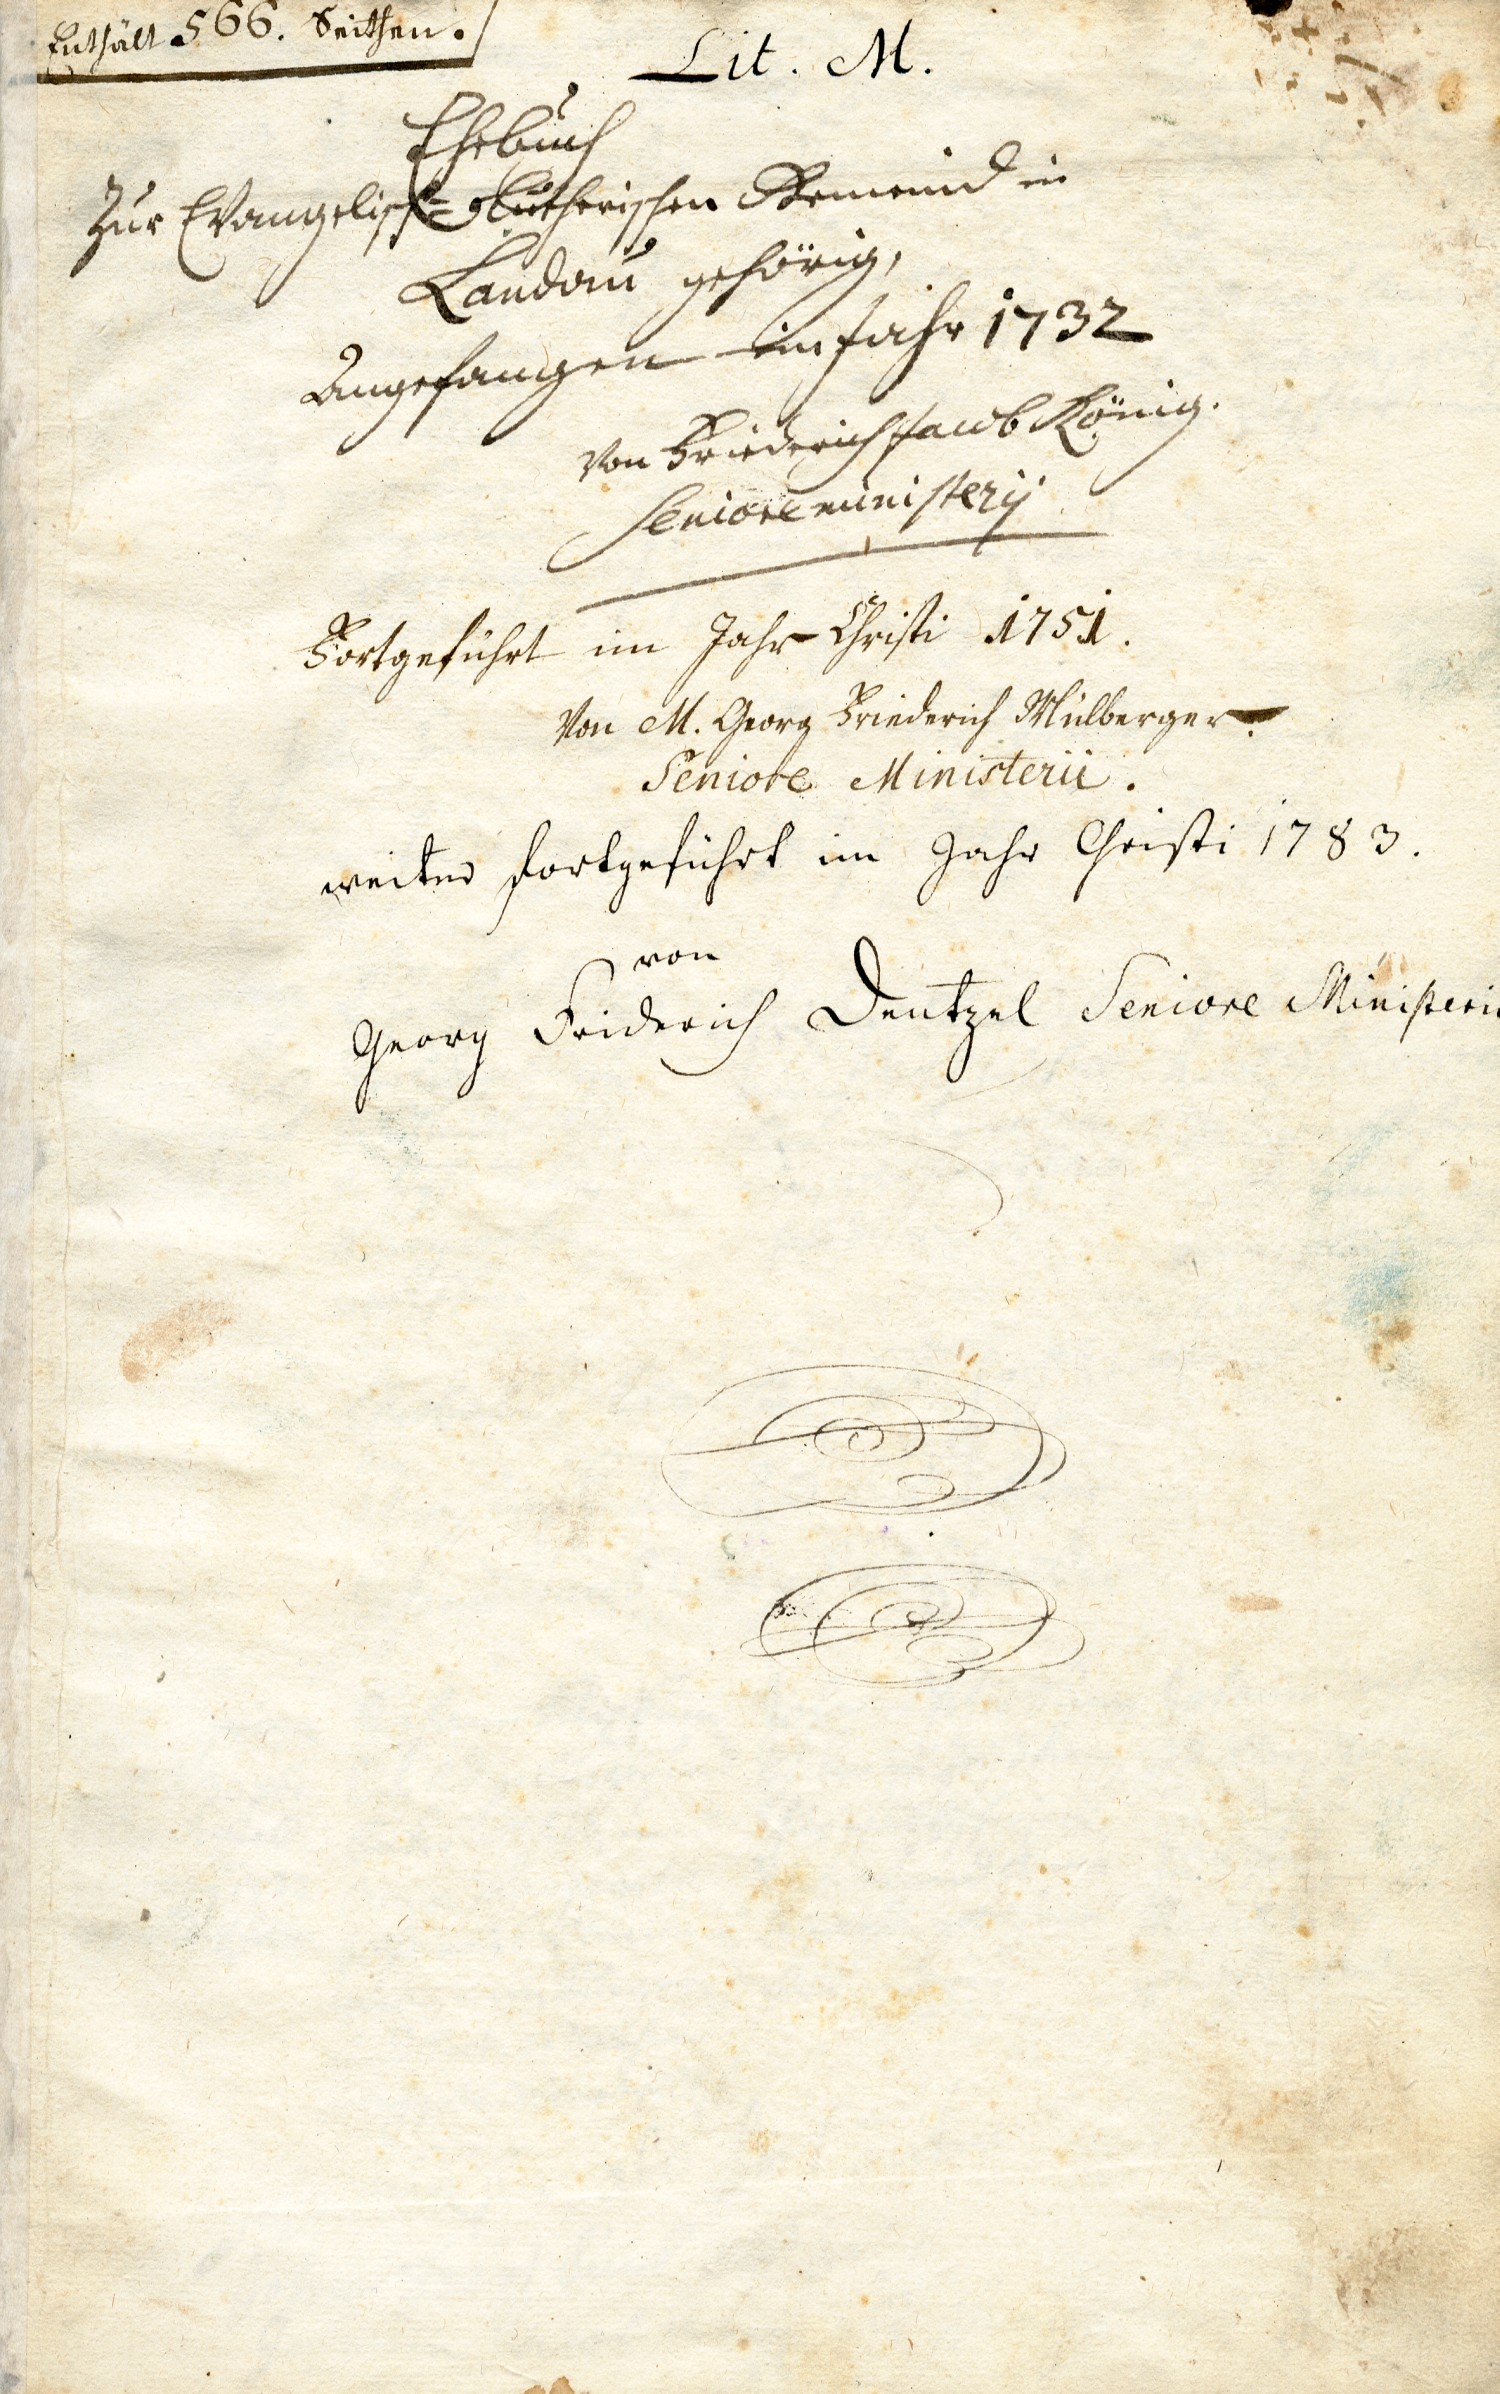 Enthält 566. Seithen.
Lit. M.
Ehebuch
Zur Evangelisch=Lutherischen Gemeind in
Landau gehörig,
Angefangen im Jahr 1732
Von Friederich Jacob König.
Seniore ministerij
Fortgeführt im Jahr Christi 1751.
Von M. Georg Friederich Mülberger.
Seniore Ministerii.
weiter fortgeführt im Jahr Christi 1783.
von
Georg Friderich Dentzel Seniore Ministerii